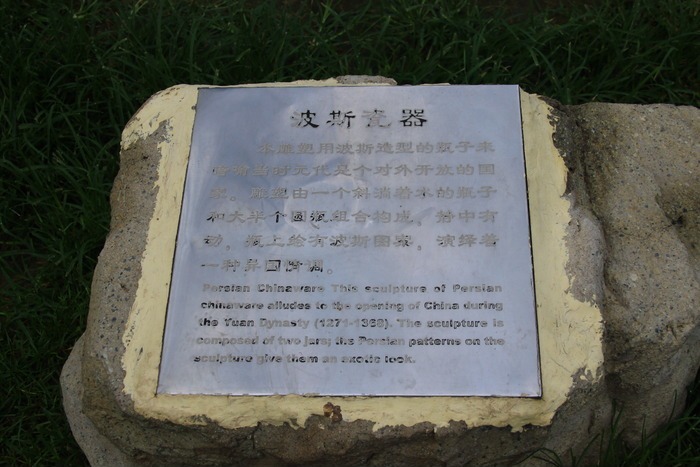 波斯瓷器
本雕塑用波斯造型的瓶子来
喻有当时元代是个对外开放的国
家。雕塑由一个斜淌着水的瓶子
和大半个圆瓶组合构成，静中有
动，瓶上绘有波斯图案，演绎着
一种异国情调。
Persian Chinaware This sculpture of Persian
chinaware alludes to the opening of China during
the Yuan Dynasty (1271-1368). The sculpture is
composed of two jars; the Persian patterns on the
sculpture give them an exotic look.